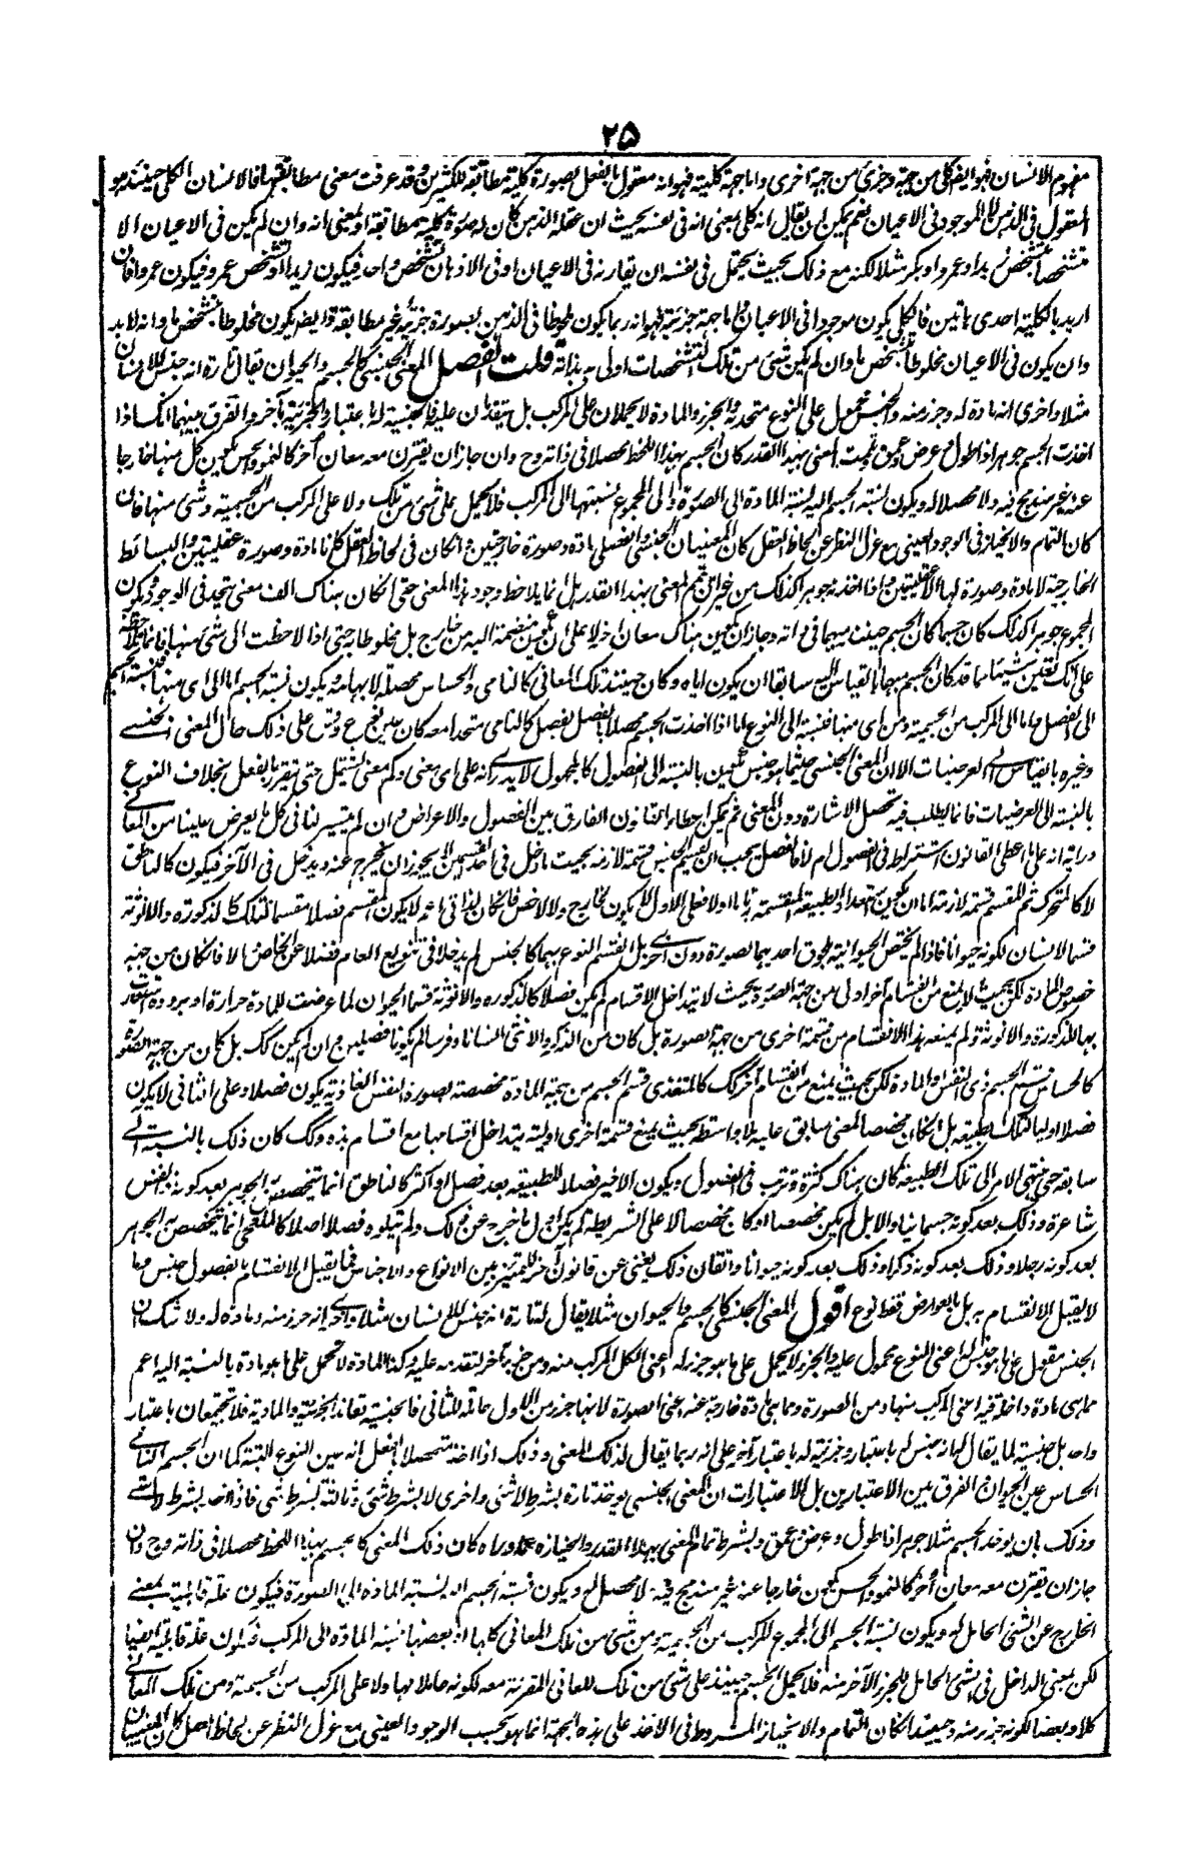 ٢٥
مفهوم الانسان فهو ايضا كلي من جهة وجزئي من جهة اخرى واما جهة كليته فهو انه معقول بالفعل بصورة كلية مطابقة للكثيرين وقد عرفت معنى مطابقتها فالانسان الكلي حينئذ هو
المعقول في الذهن لا الموجود في الاعيان نعم يمكن ان يقال انه كلي بمعنى انه في نفسه بحيث ان عقله الذهن كان له صورة كلية مطابقة او بمعنى انه وان لم يكن في الاعيان الا
متشخصا بتشخص زيد او عمرو او بكر مثلا لكنه مع ذلك بحيث يحتمل في نفسه ان يقارنه في الاعيان او في الاذهان تشخص واحد فيكون زيدا او تشخص عمرو فيكون عمروا فان
اريد بالكلية احدى هاتين فالكلي يكون موجودا في الاعيان واما جهة جزئيته فهو انه ربما يكون ملحوظا في الذهن بصورة جزئية غير مطابقة وايضا يكون مخلوطا بتشخص ما وانه لا بد
وان يكون في الاعيان مخلوطا بتشخص ما وان لم يكن شئ من تلك التشخصات اولى به بذاته قلت الفصل المعنى الجنسي كالجسم والحيوان يقال تارة انه جنس للانسان
مثلا واخرى انه مادة له وجزء منه والجنس محمول على النوع متحد به والجزء والمادة لا يحملان على المركب بل يتقدمان عليه فالجنسية له باعتبار والجزئية بآخر والفرق بينهما انك اذا
اخذت الجسم جوهرا ذا طول وعرض وعمق بحيث المعنى بهذا القدر كان الجسم بهذا اللحظ محصلا في ذاته وح وان جاز ان يقترن معه معان آخر كالنمو والحس يكون كل منها خارجا
عنه غير مندمج فيه ولا محصلا له ويكون نسبة الجسم اليه نسبة المادة الى الصورة والى المجموع نسبتها الى المركب فلا يحمل على شئ من تلك ولا على المركب من الجسمية وشئ منها فان
كان التمام والانحياز في الوجود العيني مع عزل النظر عن لحاظ العقل كان المعنيان الجنسي والفصلي مادة وصورة خارجتين وان كان في لحاظ العقل كانا مادة وصورة عقليتين والبسائط
الخارجية لا مادة وصورة لها الا عقليتين واذا اخذته جوهرا كذلك من غير ان يتم المعنى بهذا القدر بل انما يلاحظ وجود هذا المعنى حتى ان كان هناك الف معنى يتحد في الوجود ويكون
المجموع جوهرا كذلك كان جسما كان الجسم حينئذ مبهما في ذاته وجاز ان يكون هناك معان اخر لا على ان يكون منضمة اليه من خارج بل مخلوطا حتى اذا لاحظت الى شئ منها فانما تلاحظه
على انك تعين شيئا ما قد كان الجسم مبهما بالقياس اليه سابقا ان يكون اياه وكان حينئذ تلك المعاني كالنامي والحساس محصلة لابهامه ويكون نسبة الجسم اما الى اي منها فنسبة الجنس
الى الفصل واما الى المركب من الجسمية ومن اي منها فنسبته الى النوع اما اذا اخذت الجسم محصلا بالفعل بفصل كالنامي متحدا معه كان عين النوع وقس على ذلك حال المعنى الجنسي
وغيره بالقياس الى العرضيات الا ان المعنى الجنسي حيثما هو جنس مبهم بالنسبة الى الفصول كالمجهول لا يدرى انه على اي معنى وكم معنى يشتمل حتى يتقرر بالفعل بخلاف النوع
بالنسبة الى العرضيات فانما يطلب فيه تحصل الاشارة دون المعنى ثم يمكن اعطاء القانون الفارق بين الفصول والاعراض وان لم يتيسر لنا في كل ما يعرض علينا من المعاني
دراية انه على ما اعطى القانون استراط في الفصول ام لا فالفصل يجب ان يقسم الجنس قسمة لازمة بحيث ما دخل في احد القسمين لا يجوز ان يخرج عنه ويدخل في الآخر فيكون كالناطق
لا كالمتحرك ثم المقسم قسمة لازمة اما ان يكون بعد استعداد الطبيعة المقسمة بذاتها او لا
قسما الانسان لكونه حيوانا
خصوص المادة لكن بحيث لا يمنع من انقسام آخر اولى من جهة الصورة بحيث لا يتداخل الاقسام لم يكن فصلا كالذكورة والانوثة قسما الحيوان لما عرضت للمادة حرارة او برودة
بها الذكورة والانوثة ولم يمنعه هذا الانقسام من قسمة اخرى من جهة الصورة بل كان من الذكر والانثى انسانا وفرسا لم يكونا فصلين وان لم يكن كك بل كان من جهة الصورة
كالحساس قسم الجسم ذي النفس والمادة لكن بحيث يمنع من انقسام آخر كك كالمتغذي قسم الجسم من جهة المادة مخصصة لصورة النفس الغاذية يكون فصلا وعلى الثاني لا يكون
فصلا اوليا لتلك الطبيعة بل ان كان مخصصا لمعنى سابق عليه بلا واسطة بحيث يمنع قسمة اخرى اولية يتداخل اقسامها مع اقسام هذه وكك كان ذلك بالنسبة الى
سابقه حتى ينتهي الامر الى تلك الطبيعة كان هناك كثرة وترتب في الفصول ويكون الاخير فصلا للطبيعة بعد فصل او اكثر كالناطق انما يتخصص به الجوهر بعد كونه ذا نفس
شاعرة وذلك بعد كونه جسمانيا والا بل لم يكن مخصصا او كان مخصصا لا على الشريطة لم يكن اول ما خرج عن ذلك ولم يتلوه فصلا اصلا كالملتحي انما يتخصص به الجوهر
بعد كونه رجلا وذلك بعد كونه ذكرا وذلك بعد كونه حيوانا واتقان ذلك يغني عن قانون آخر للتمييز بين الانواع والاجناس فما يقبل الانقسام بالفصول جنس وما
لا يقبل الانقسام به بل بالعوارض فقط نوع اقول المعنى الجنسي كالجسم والحيوان مثلا يقال له تارة انه جنس للانسان مثلا واخرى انه جزء منه ومادة له ولا شك ان
الجنس مقول على ما هو جنس له اعني النوع محمول عليه والجزء لا يحمل على ما هو جزء له اعني الكل المركب منه ومن جزء آخر لتقدمه عليه وكذا المادة لا تحمل على ما هو مادة بالنسبة اليه اعم
ما هي مادة داخلة فيه اعني المركب منها ومن الصورة وما هي مادة خارجة عنه اعني الصورة لانها جزء من الاول حاملة للثاني فالجنسية تعاند الجزئية والمادية فلا تجتمعان باعتبار
واحد بل جنسية لما يقال لها انه جنس له باعتبار وجزئية له باعتبار آخر على انه ربما يقال لذلك المعنى وذلك اذا اخذ متحصلا بالفعل انه عين النوع البتة كما ان الجسم النامي
الحساس عين الحيوان الفرق بين الاعتبارين بل الاعتبارات ان المعنى الجنسي يوخذ تارة بشرط لا شئ واخرى لا بشرط شئ وثالثة بشرط شئ فاذا اخذ بشرط لا شئ
وذلك بان يوخذ الجسم مثلا جوهرا ذا طول وعرض وعمق وبشرط تمام المعنى بهذا القدر وانحيازه عما وراءه كان ذلك المعنى كالجسم بهذا اللحظ محصلا في ذاته وح وان
جاز ان يقترن معه معان اخر كالنمو والحس يكون خارجا عنه غير مندمج فيه لا محصل له ويكون نسبة الجسم اليه نسبة المادة الى الصورة فيكون علة قابلية بمعنى
الخارج عن الشئ الحامل له ويكون نسبة الجسم الى المجموع المركب من الجسمية ومن شئ من تلك المعاني كلها او بعضها نسبة المادة الى المركب فيكون علة قابلية ايضا
لكن بمعنى الداخل في الشئ الحامل للجزء الآخر منه فلا يحمل الجسم حينئذ على شئ من تلك المعاني المقترنة معه لكونه حاملا لها ولا على المركب من الجسمية ومن تلك المعاني
كلا او بعضا لكونه جزء منه وحينئذ ان كان التمام والانحياز المشروط في الاخذ على هذه الجهة انما هو بحسب الوجود العيني مع عزل النظر عن لحاظ العقل كان المعنيان